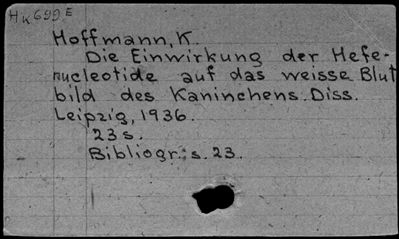 Hk699E
Hoffmann, K.
Die Einwirkung der Hefe-
nucleotide auf das weisse Blut
bild des Kaninchens. Diss.
Leipzig, 1936.
23 s.
Bibliogr.: s. 23.